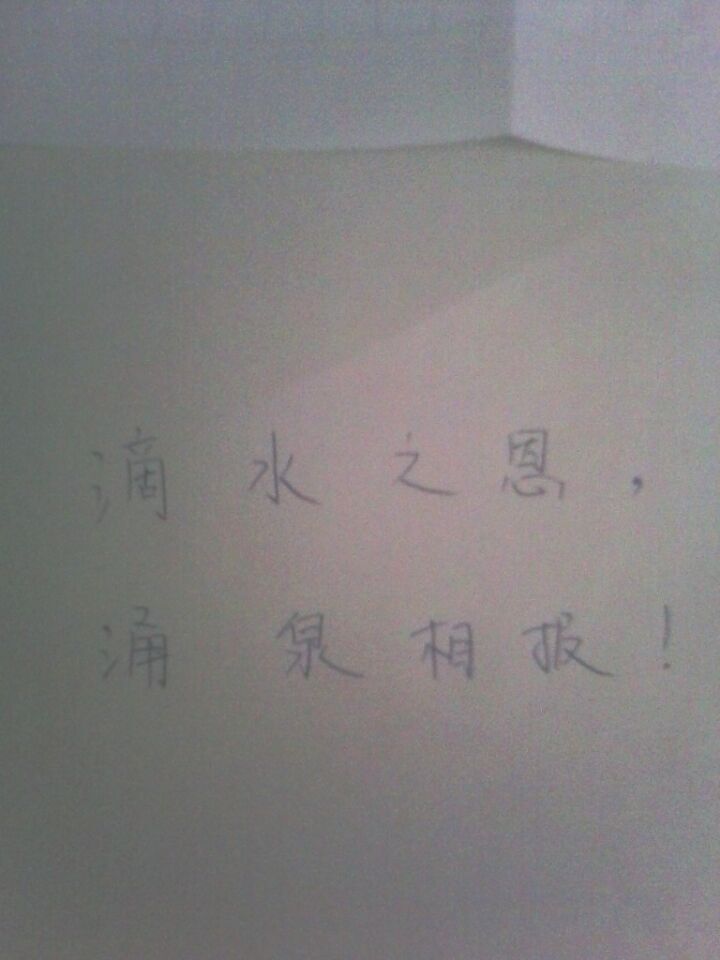 滴水之恩，
涌泉相报！